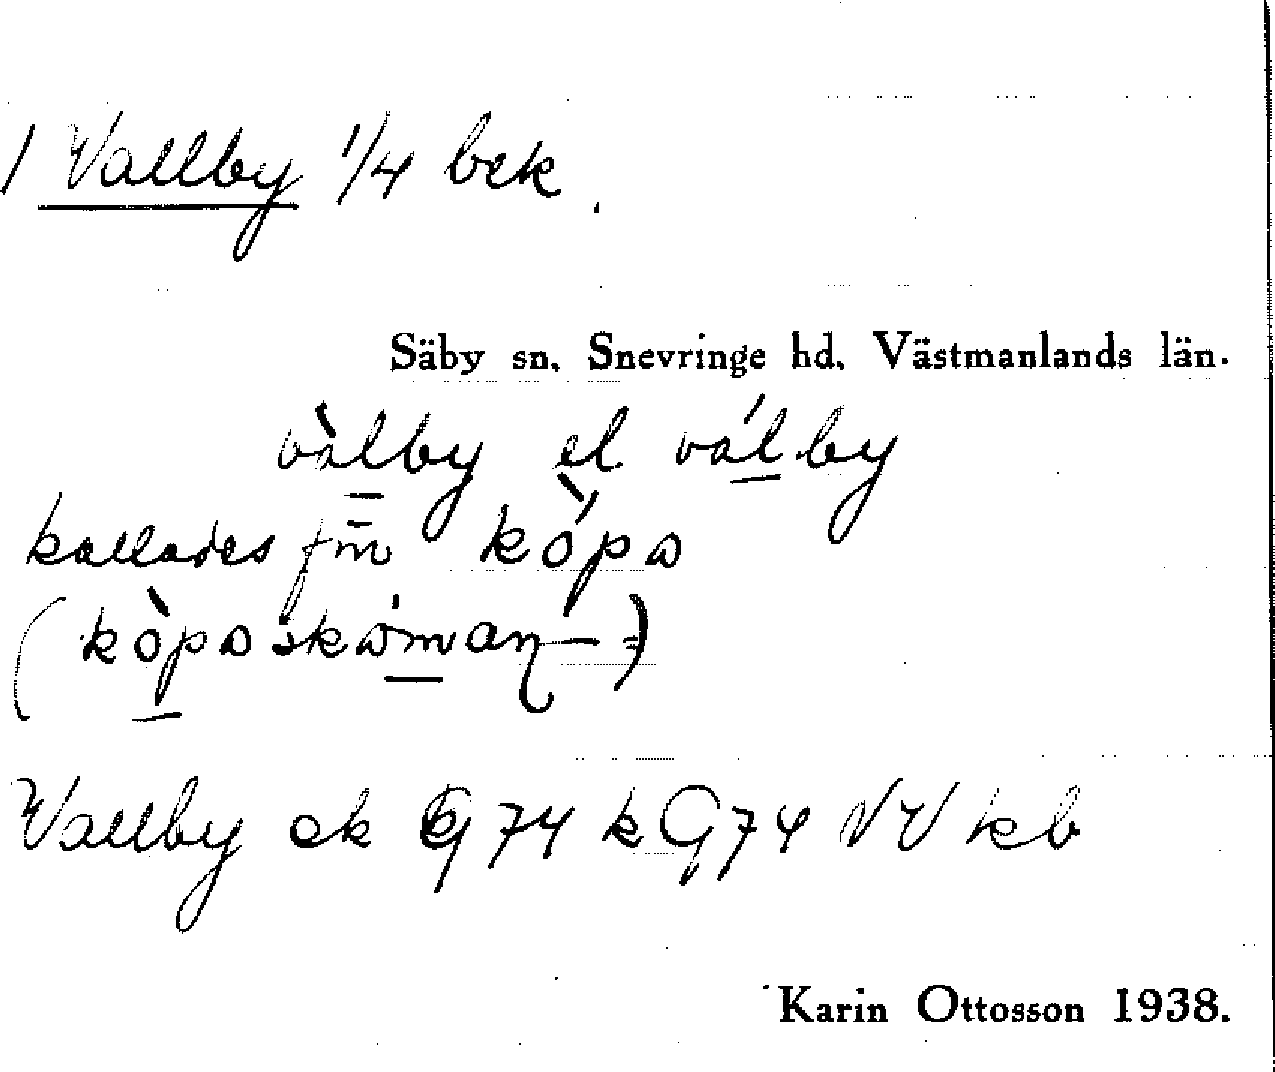 1 Vallby 1/4 bek.
Säby sn. Snevringe hd. Västmanlands län.
vàlby el válby
kallades fm̄ köpa
(köpaskaman-)
Vallby ek G 74 k G 74 NV kb
Karin Ottosson 1938.